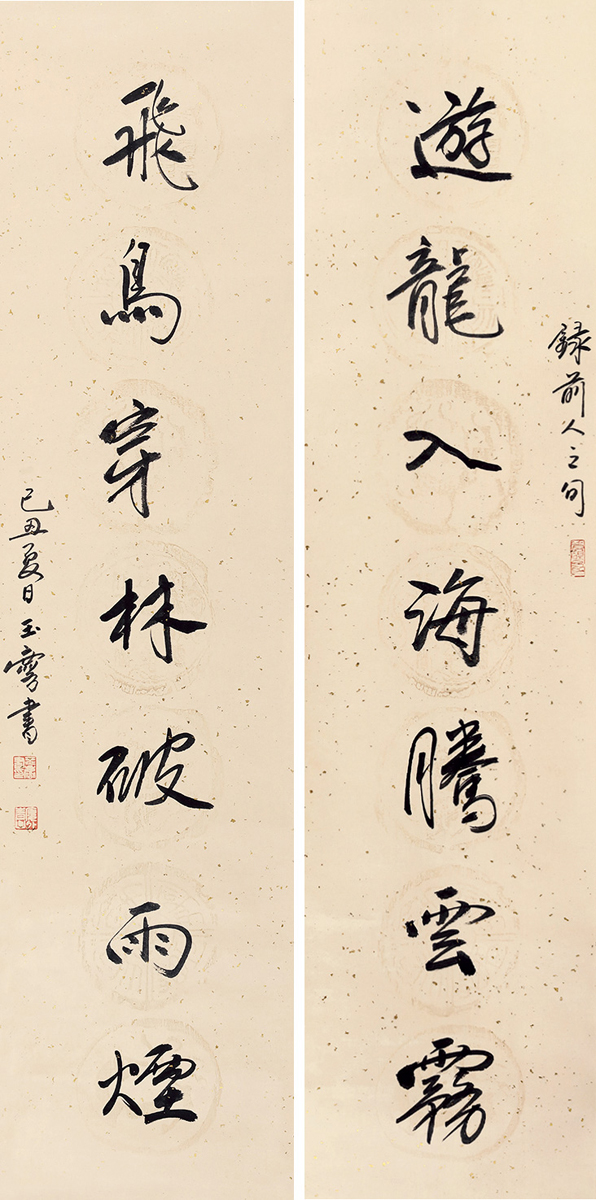 録前人之句
遊龍入海騰雲霧
飛鳥穿林破雨煙
己丑夏日玉霽書